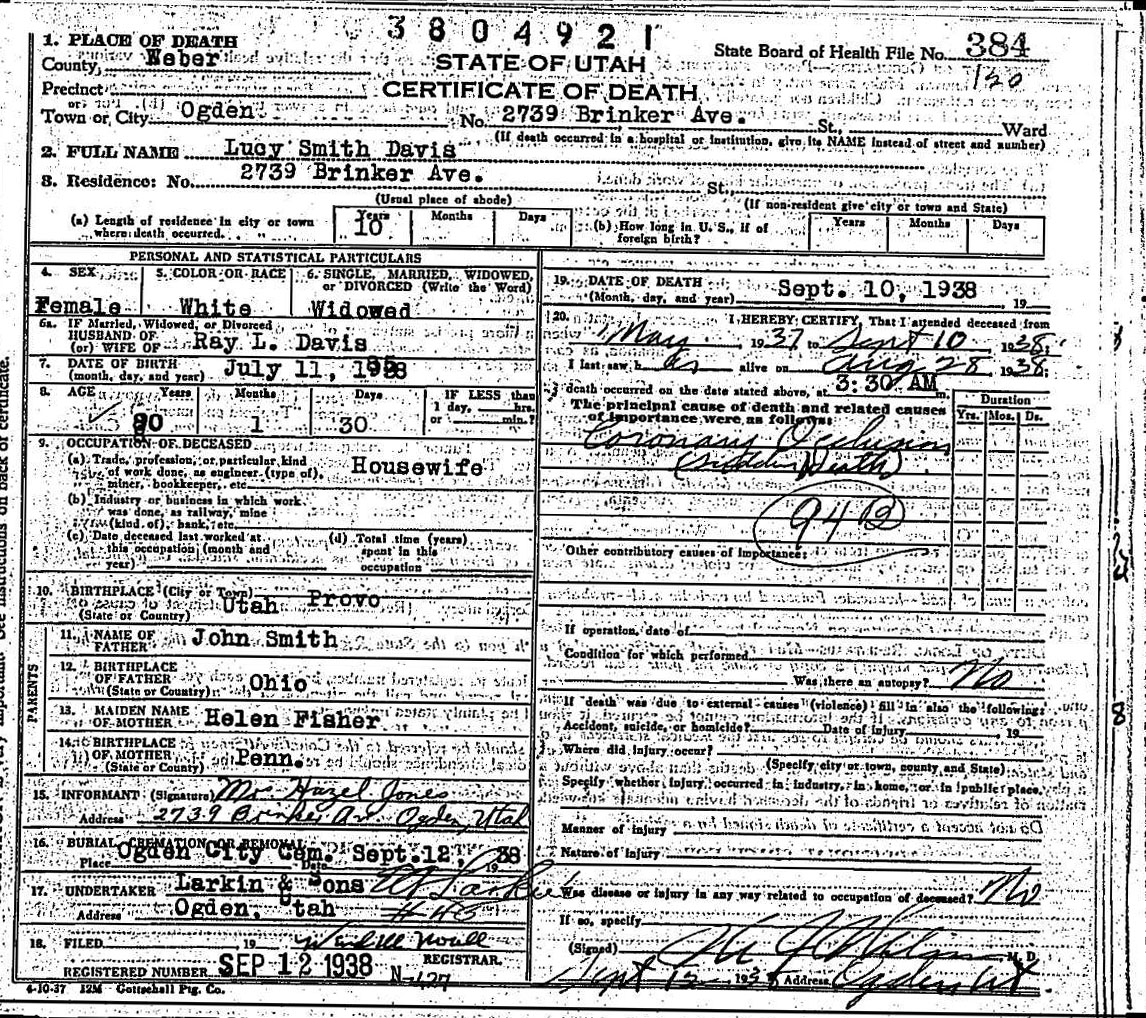 3804921
1. PLACE OF DEATH
State Board of Health File No. 384
County Weber
STATE OF UTAH
130
Precinct
CERTIFICATE OF DEATH
or
Town or City Ogden No. 2739 Brinker Ave. St., Ward
(If death occurred in a hospital or institution, give its NAME instead of street and number)
2. FULL NAME Lucy Smith Davis
3. Residence: No. 2739 Brinker Ave. St.
(Usual place of abode) (If non-resident give city or town and State)
(a) Length of residence in city or town where death occurred. Years 10 Months Days
(b) How long in U. S., if of foreign birth? Years Months Days
PERSONAL AND STATISTICAL PARTICULARS
4. SEX 5. COLOR OR RACE 6. SINGLE, MARRIED, WIDOWED, or DIVORCED (Write the Word)
Female White Widowed
6a. IF Married, Widowed, or Divorced
HUSBAND OF
(or) WIFE OF Ray L. Davis
7. DATE OF BIRTH
(month, day, and year) July 11,
8. AGE Years Months Days IF LESS than
1 day, hrs.
or min.?
1 30
9. OCCUPATION OF DECEASED
(a) Trade, profession, or particular kind
of work done, as engineer (type of),
miner, bookkeeper, etc. Housewife
(b) Industry or business in which work
was done, as railway, mine
(kind of), bank, etc.
(c) Date deceased last worked at
this occupation (month and
year)
(d) Total time (years)
spent in this
occupation
10. BIRTHPLACE (City or Town) Provo
(State or Country) Utah
PARENTS
11. NAME OF
FATHER John Smith
12. BIRTHPLACE
OF FATHER
(State or Country) Ohio
13. MAIDEN NAME
OF MOTHER Helen Fisher
14. BIRTHPLACE
OF MOTHER
(State or Country) Penn.
15. INFORMANT (Signature) Mrs Hazel Jones
Address 2739 Brinker Av. Ogden, Utah
16. BURIAL, CREMATION OR REMOVAL
Place Ogden City Cem. Date Sept. 12, 19 38
17. UNDERTAKER Larkin & Sons
Address Ogden, Utah
18. FILED 19
REGISTRAR.
REGISTERED NUMBER SEP 12 1938
4-10-37 12M Gottschall Ptg. Co.
19. DATE OF DEATH
(Month, day, and year) Sept. 10, 1938 19
20. I HEREBY CERTIFY, That I attended deceased from
May 1937 to Sept 10 1938;
I last saw h er alive on Aug 28 1938;
death occurred on the date stated above, at 3:30 AM m.
The principal cause of death and related causes
of importance were as follows:
Duration
Yrs. Mos. Ds.
Coronary Occlusion
(Sudden Death)
94 B
Other contributory causes of importance:
If operation, date of
Condition for which performed
Was there an autopsy? No
If death was due to external causes (violence) fill in also the following:
Accident, suicide, or homicide? Date of injury 19
Where did injury occur?
(Specify city or town, county and State)
Specify whether injury occurred in industry, in home, or in public place,
Manner of injury
Nature of injury
Was disease or injury in any way related to occupation of deceased? No
If so, specify
(Signed) M. D.
Address Ogden Ut.
See instructions on back of certificate.